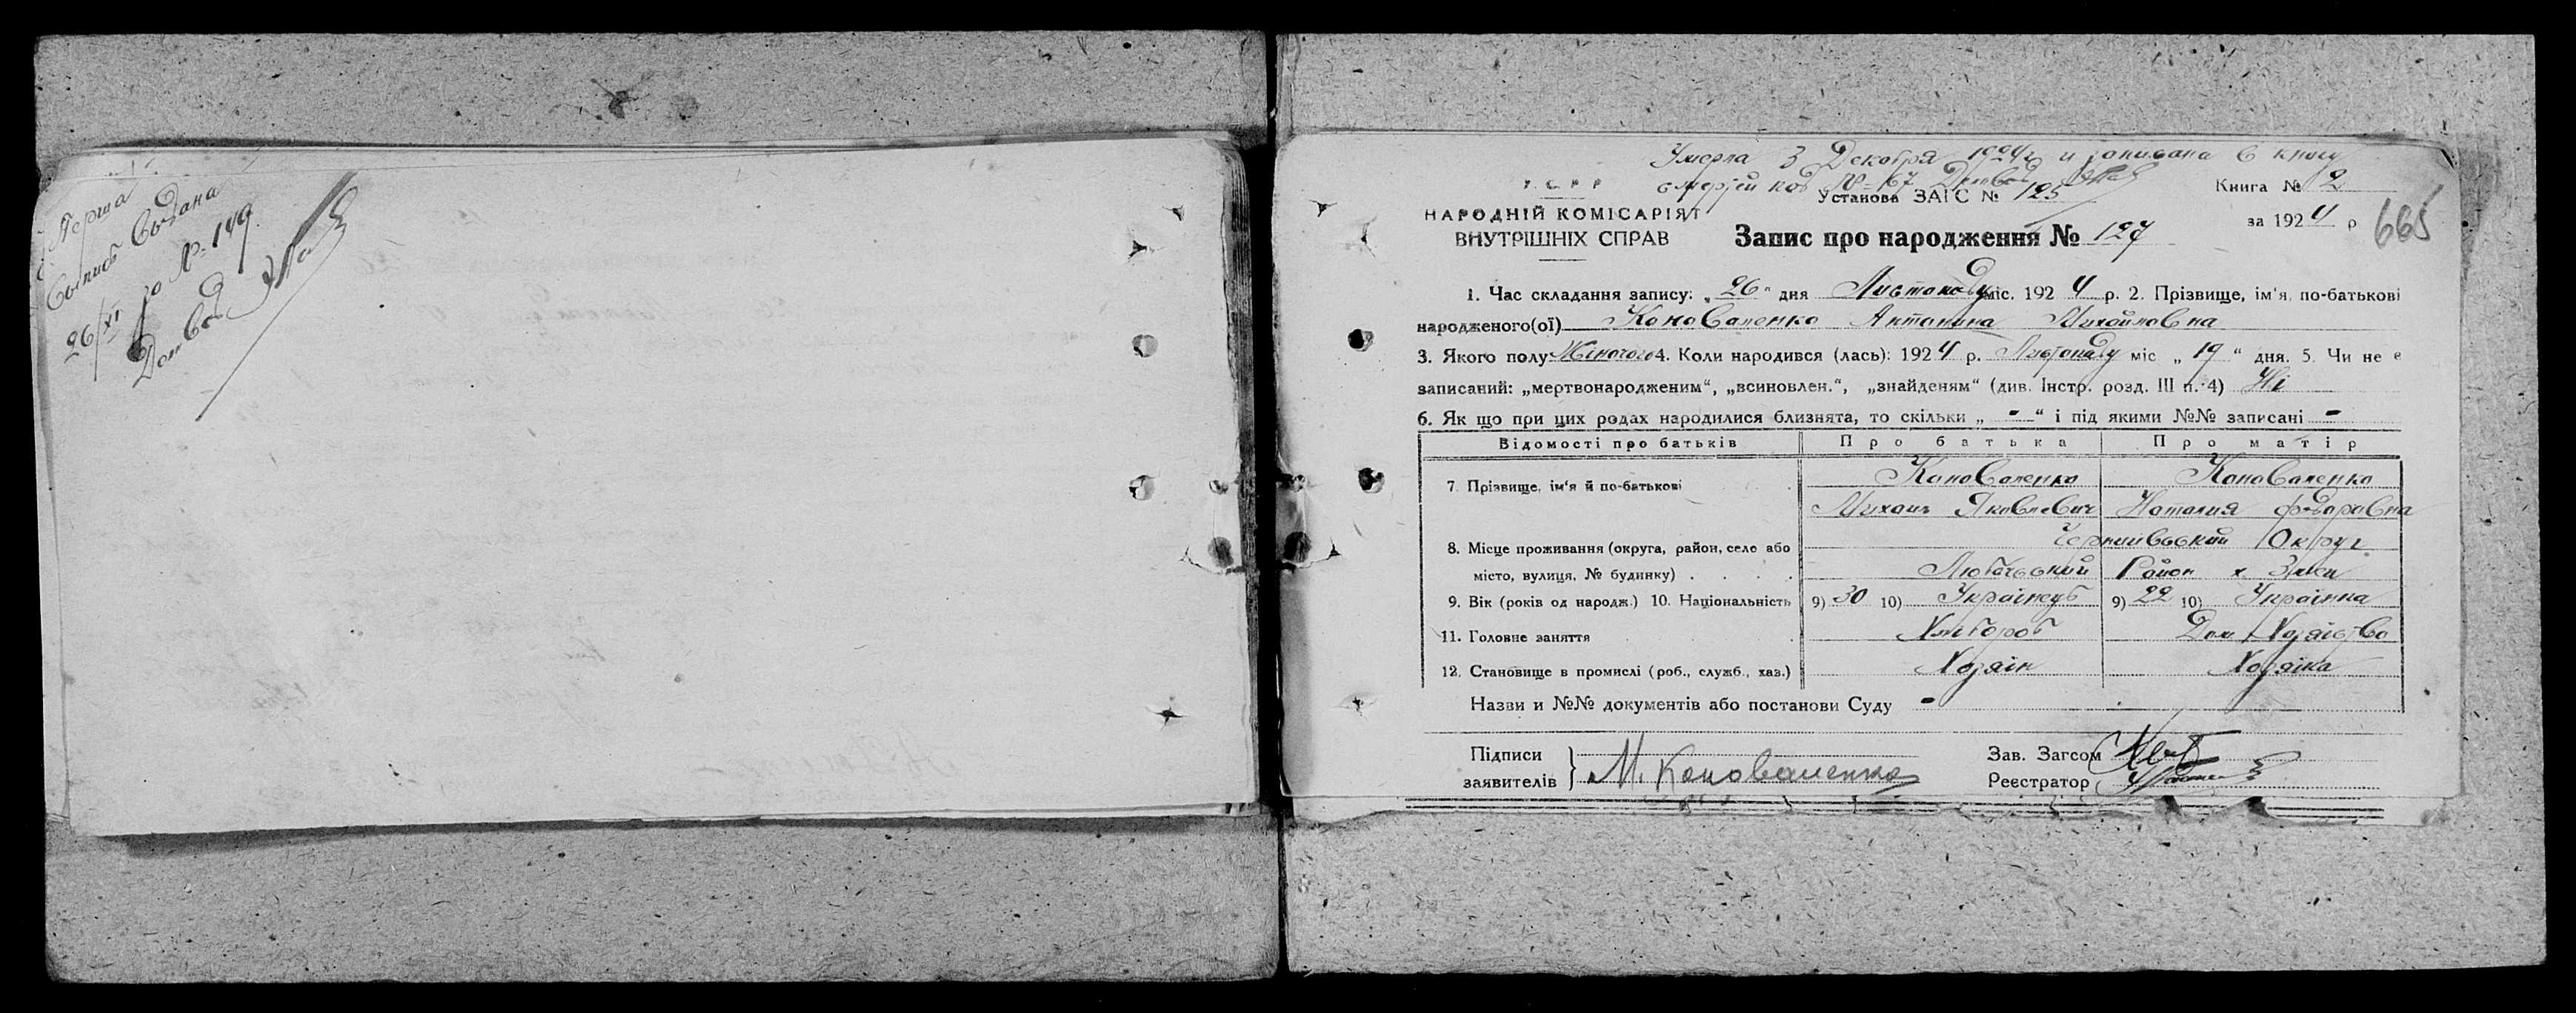 Перша
Выпись выдана
26/XI за № 149
Діловод
Умерла 3 Декабря 1924 г и записана в книгу
смертей под № 67 Діловод
У.С.Р.Р
Установа ЗАГС № 125
Книга № 2
НАРОДНІЙ КОМІСАРІЯТ
ВНУТРІШНІХ СПРАВ
Запис про народження № 127
за 1924 р
665
1. Час складання запису: „26“ дня Листопаду міс. 1924 р. 2. Прізвище, ім'я, по-батькові
народженого(ої) Коноваленко Антонина Михайловна
3. Якого полу Жіночого 4. Коли народився (лась): 1924 р. Листопаду міс „19“ дня. 5. Чи не є
записаний: „мертвонародженим“, „всиновлен.“, „знайденям“ (див. Інстр. розд. III п. 4) Ні
6. Як що при цих родах народилися близнята, то скільки „ - “ і під якими №№ записані -
Відомості про батьків Про батька Про матір
7. Прізвище, ім'я й по-батькові Коноваленко Коноваленко
Михаил Яковлевич Наталия Федоровна
8. Місце проживання (округа, район, село або Чернигівський Округ
місто, вулиця, № будинку) . . . . Любечський Район х.
9. Вік (років од народж.) 10. Національність 9) 30 10) Українець 9) 22 10) Українка
11. Головне заняття Хлібороб Дом Хозяїство
12. Становище в промислі (роб., служб., хаз.) Хозяїн Хозяїка
Назви и №№ документів або постанови Суду -
Підписи Зав. Загсом
заявителів М. Коноваленко Реєстратор